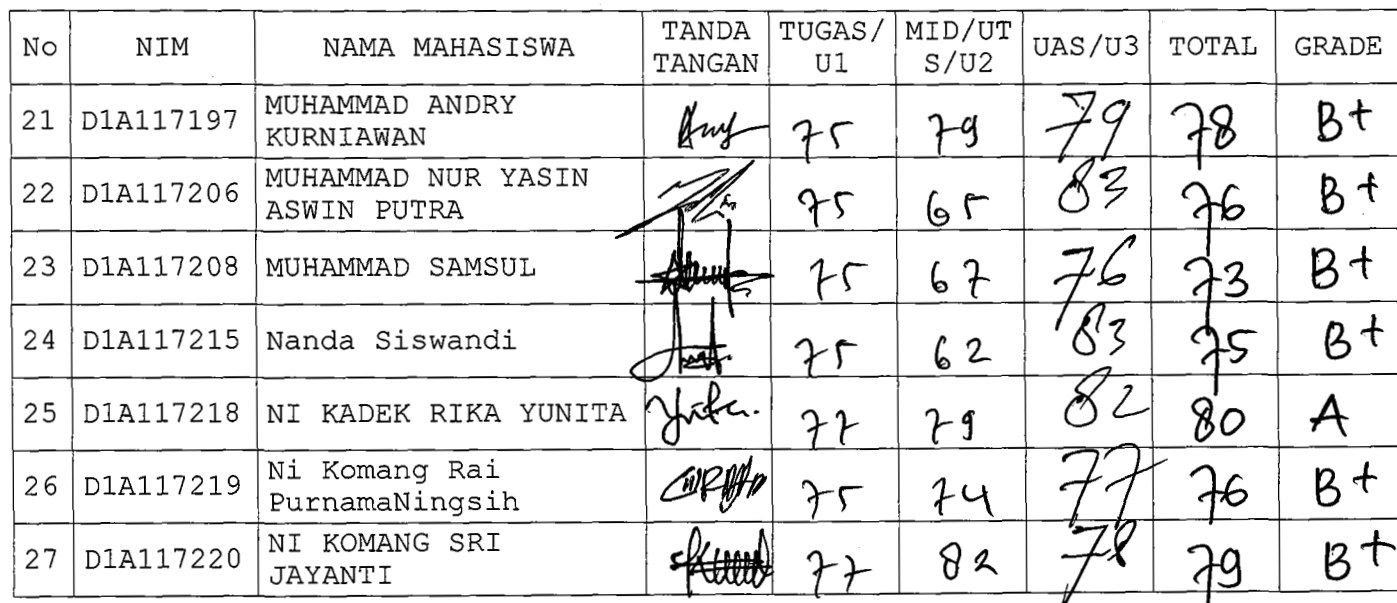 No NIM NAMA MAHASISWA TANDA TANGAN TUGAS/U1 MID/UTS/U2 UAS/U3 TOTAL GRADE
21 D1A117197 MUHAMMAD ANDRY KURNIAWAN 75 79 79 78 B+
22 D1A117206 MUHAMMAD NUR YASIN ASWIN PUTRA 75 65 83 76 B+
23 D1A117208 MUHAMMAD SAMSUL 75 67 76 73 B+
24 D1A117215 Nanda Siswandi 75 62 83 75 B+
25 D1A117218 NI KADEK RIKA YUNITA 77 79 82 80 A
26 D1A117219 Ni Komang Rai PurnamaNingsih 75 74 77 76 B+
27 D1A117220 NI KOMANG SRI JAYANTI 77 82 78 79 B+